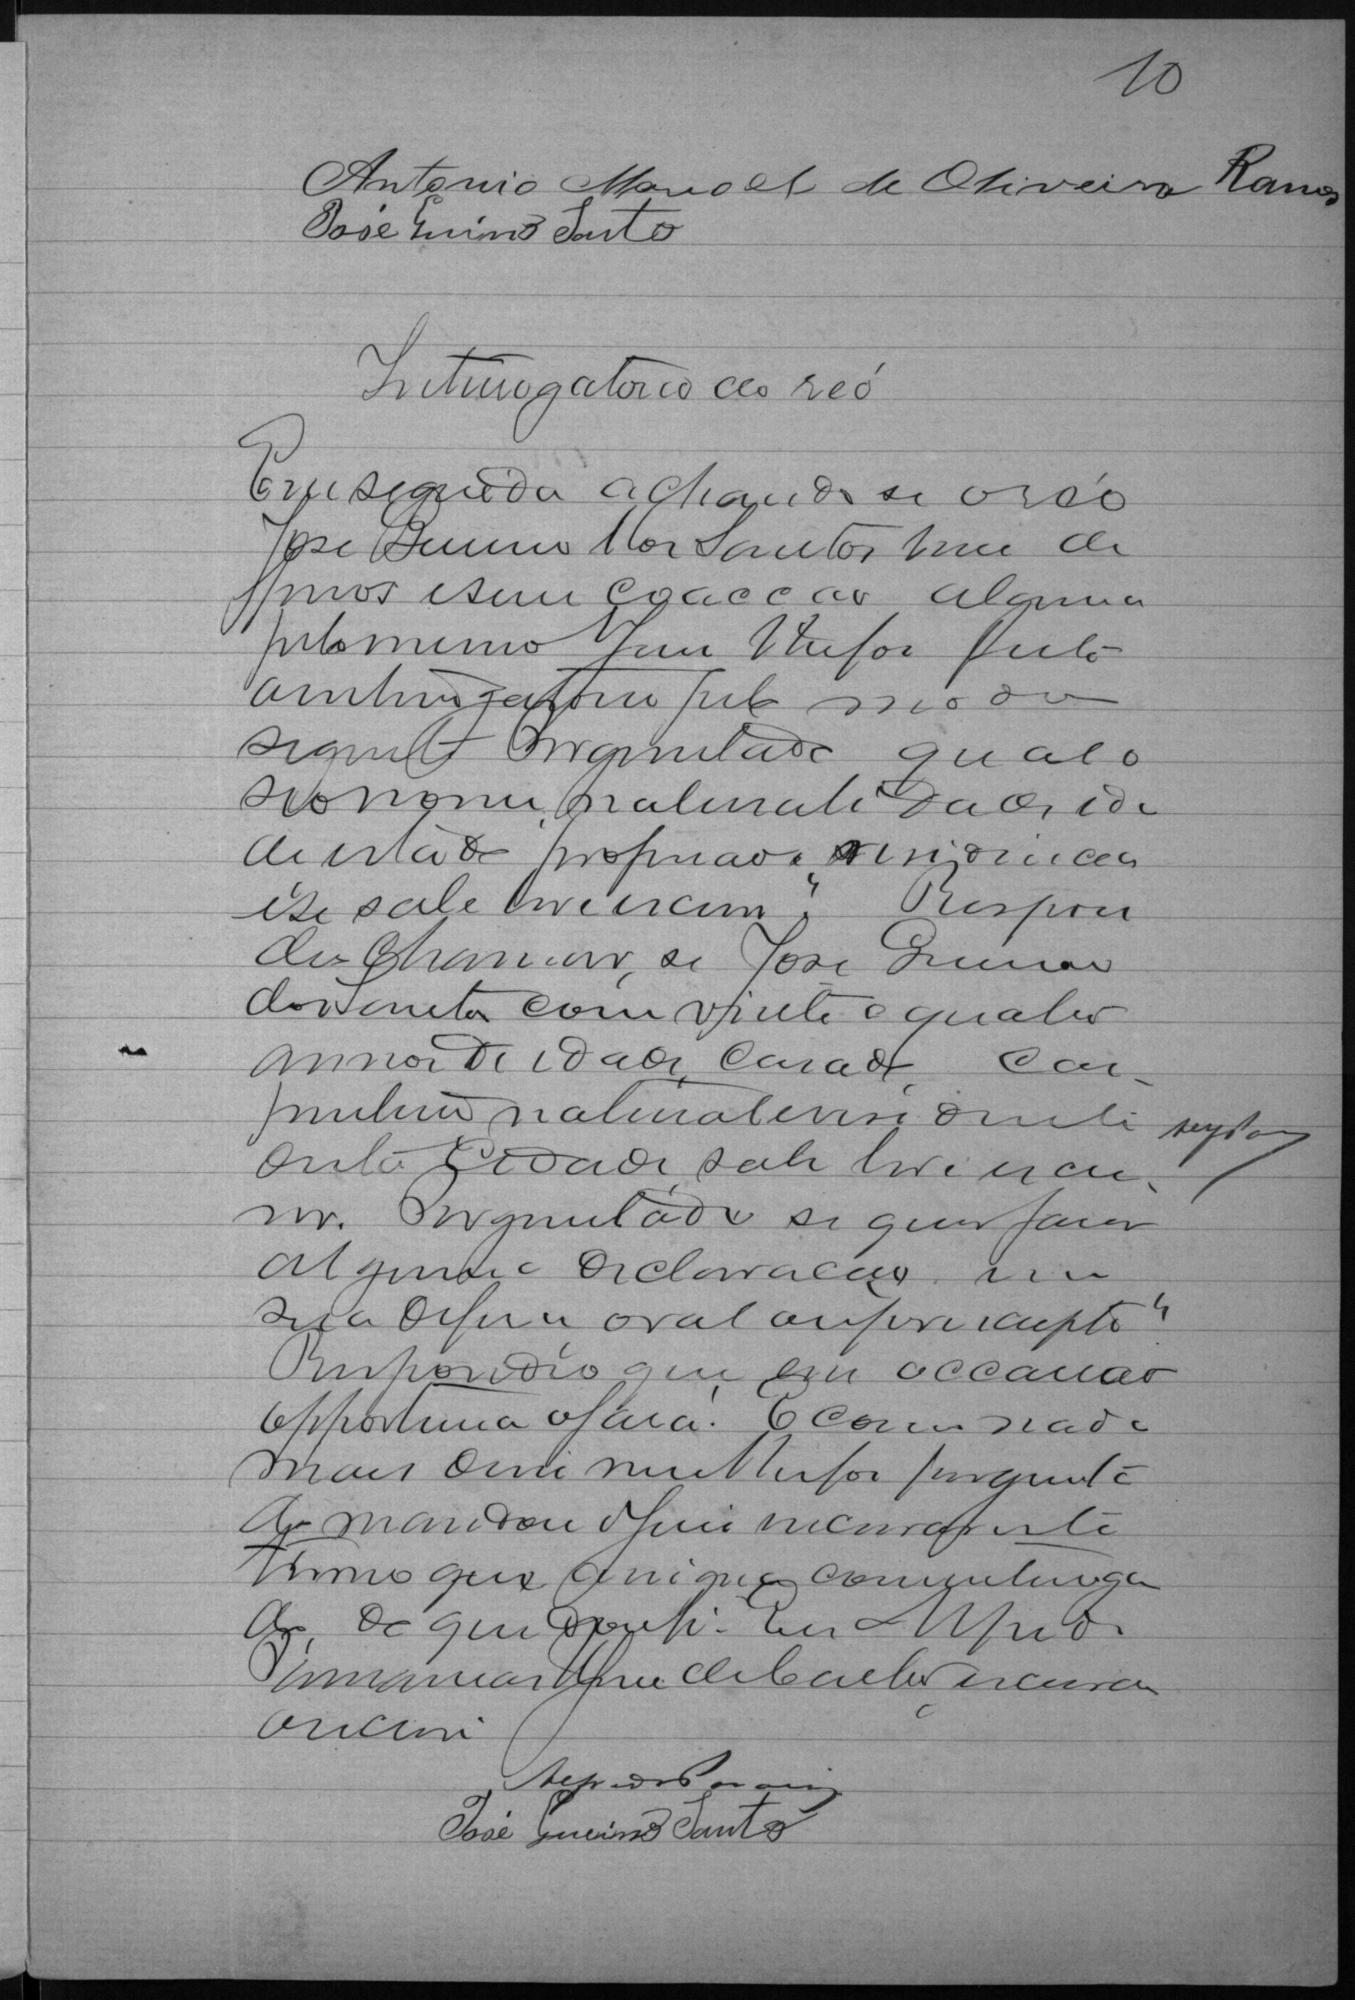 10
Antonio Manoel de Oliveira Ramos
José Santo
Interrogatorio ao reó
Em seguida achando se o réo
Jose dos Santos livre de
ferros e sem coaccão alguma
pelo mesmo Juiz lhe foi feito
o interrogatorio pelo modo
seguinte Perguntado qual o
seo nome, naturalidade, ida
de estado profissão, residencia
e se sabe ler e escrever? Respon
deu chamar, se Jose
dos Santos com vinte e quatro
annos de idade, casado, car-
pinteiro natural e residente
desta Cidade, sabe ler e escre-
ver. Perguntado se quer fazer
alguma declaracão em
sua defesa oral ou por escripto?
Respondeo que em occasião
opportuna o fará. E como nada
mais disse nem lhe foi pergunta
do mandou o Juiz lavrar este
termo que assigna com o interroga
do, de que dou fé. Eu Alfredo
de Castro, escrivão
o escrevi
Alfredo
José Santo